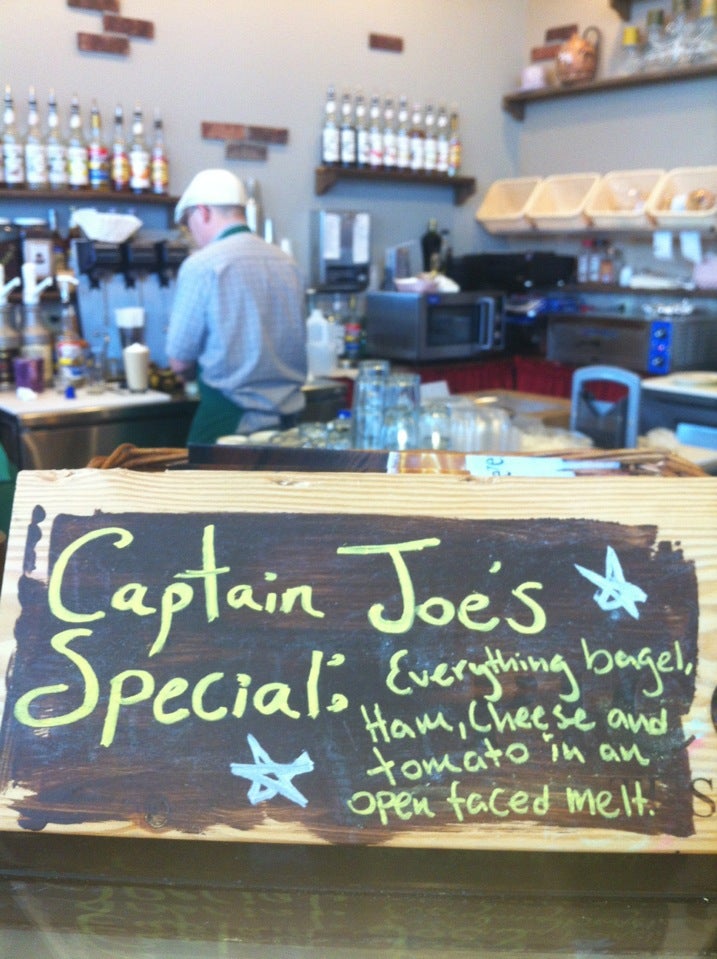 Captain Joe's
Special: Everything bagel,
Ham, Cheese and
tomato in an
open faced melt.